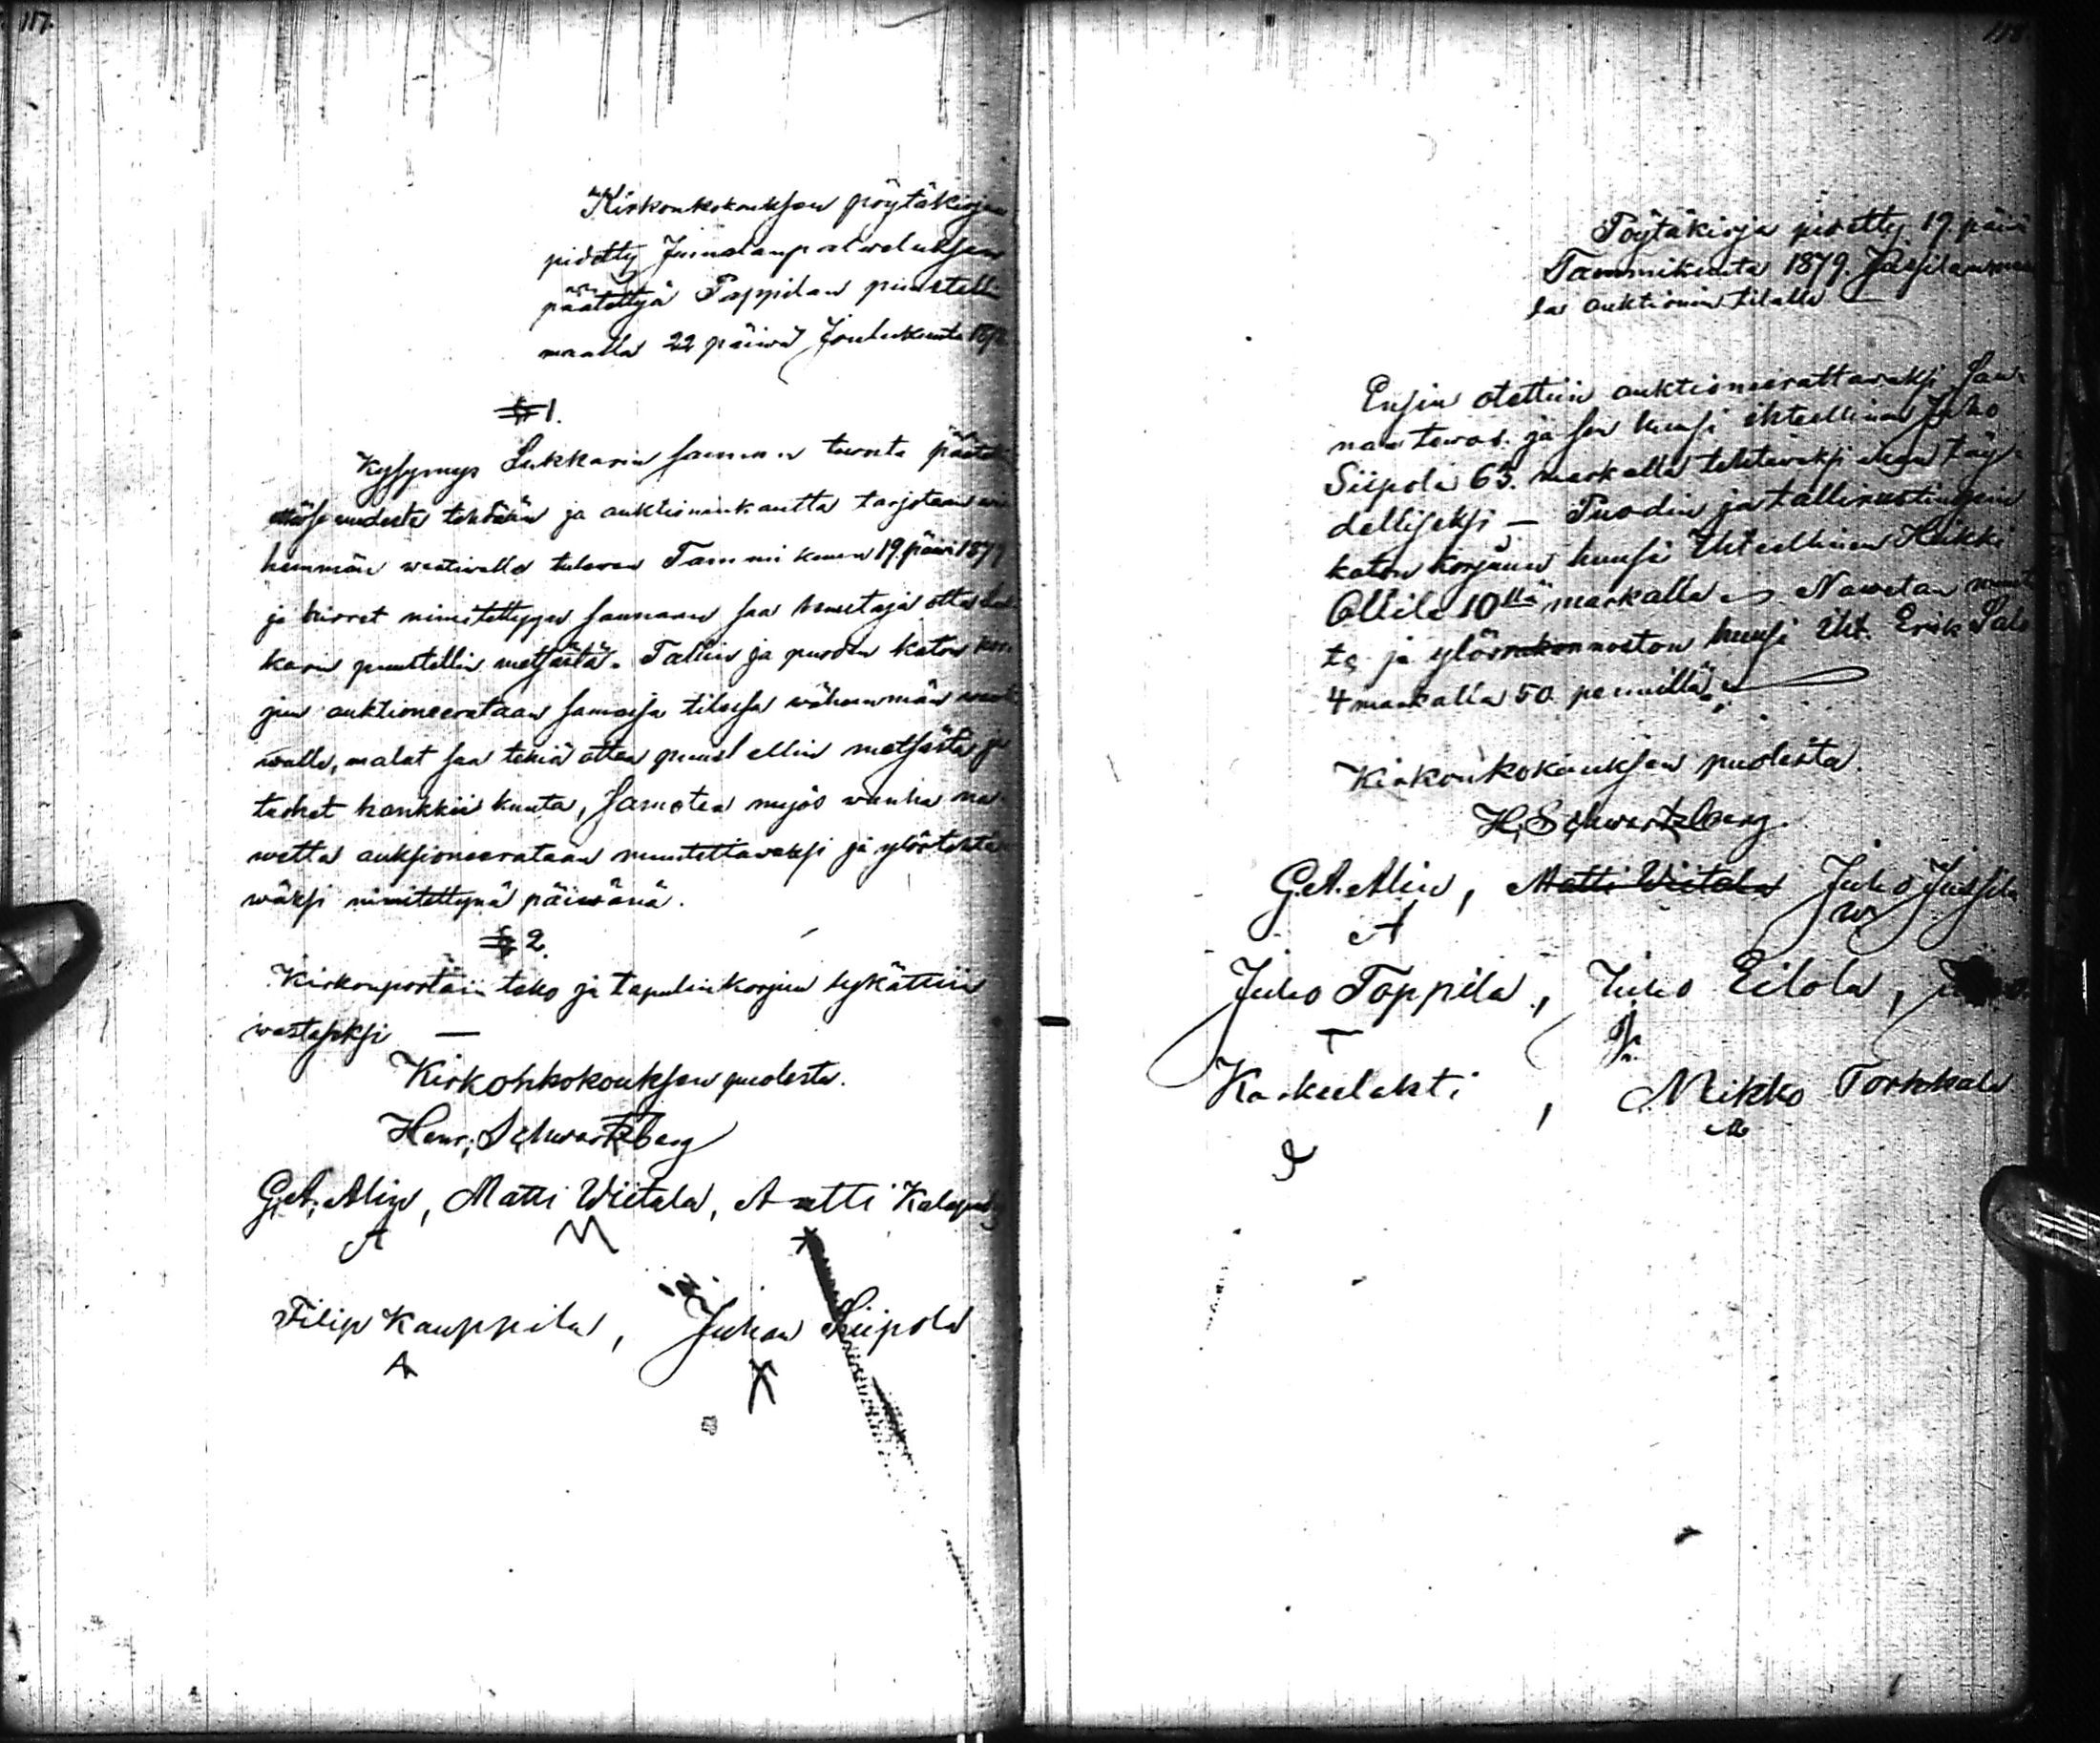 117.
Kirkonkokouksen pöytäkirja
pidetty Jumalanpalweluksen
päätettyä Pappilan puustelli
maalla 22 päiwä Joulukuuta
§ 1.
Kysymys Lukkarin saunan teosta
uudesta tehdään ja auktioninkautta tarjotaan
hemmän waativalle tulevan Tammikuun 19. päiv. 1879
ja hirret nimitettyyn saunaan saa ottaa
karin puustellin metsästä. Tallin ja puodin katon
jun auktioneerataan samassa tilassa wähemmän
walle, malat saa tekiä ottaa puustellin metsästä ja
tuohet hankkii kunta, samoten myös wanha na
wetta auksioneerataan muutettawaksi ja ylöstehtä
wäksi nimitettynä päiwänä.
§ 2.
Kirkonportäin teko ja tapulinkorjuu lykättiin
wastaseksi —
Kirkonkokouksen puolesta.
Henr. Schwartzberg
G. A. Alin, Matti Wiitala, Antti
A M
Filip Kauppila, Juhan Siipola
118
Pöytäkirja pidetty 19 päiv
Tammikuuta 1879.
la auktionin tilalla
Ensin otettiin auktioneerattawaksi Sau-
nan tewos. ja sen huusi ihteellinen Juho
Siipola 63. markalla tehtäwäksi täy-
delliseksi — Puodin ja tallirustingin
katon korjuun huusi Ihteellinen Heikki
Ollila 10llä markalla — Nawetan
ta ja ylösnoston huusi Iht. Erik
4 markalla 50 pennillä.
Kirkonkokouksen puolesta
H. Schwartzberg.
G. A. Alin, Matti Wiitala Juho Jussila
A
Juho Toppila, Juho Eilola,
T
Karkulahti, Mikko Torkkala
M